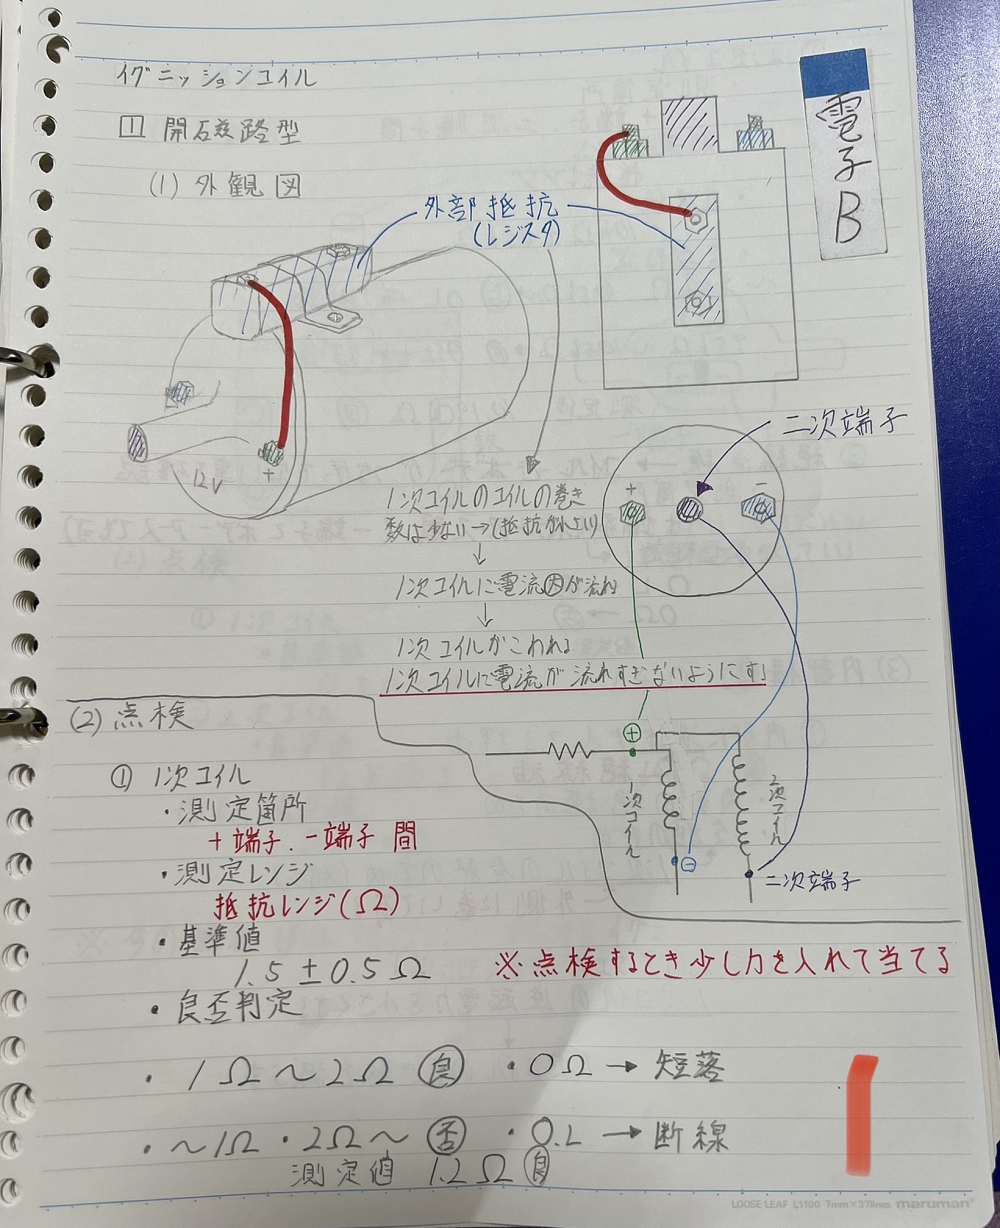 イグニッションコイル
電子B
1 開磁路型
(1) 外観図
外部抵抗
(レジスタ)
12V
+
二次端子
+
−
1次コイルのコイルの巻き
数は少ない→(抵抗が小さい)
↓
1次コイルに電流大が流れ
↓
1次コイルがこわれる
1次コイルに電流が流れすぎないようにす
(2) 点検
⊕
1次コイル
2次コイル
⊖
二次端子
① 1次コイル
・測定箇所
+端子.−端子 間
・測定レンジ
抵抗レンジ(Ω)
・基準値
1.5±0.5Ω
※点検するとき少し力を入れて当てる
・良否判定
・1Ω〜2Ω 良 ・0Ω→短落
・〜1Ω・2Ω〜 否 ・O.L→断線
測定値 1.2Ω 良
1
LOOSE LEAF L1100 7mm×37lines maruman